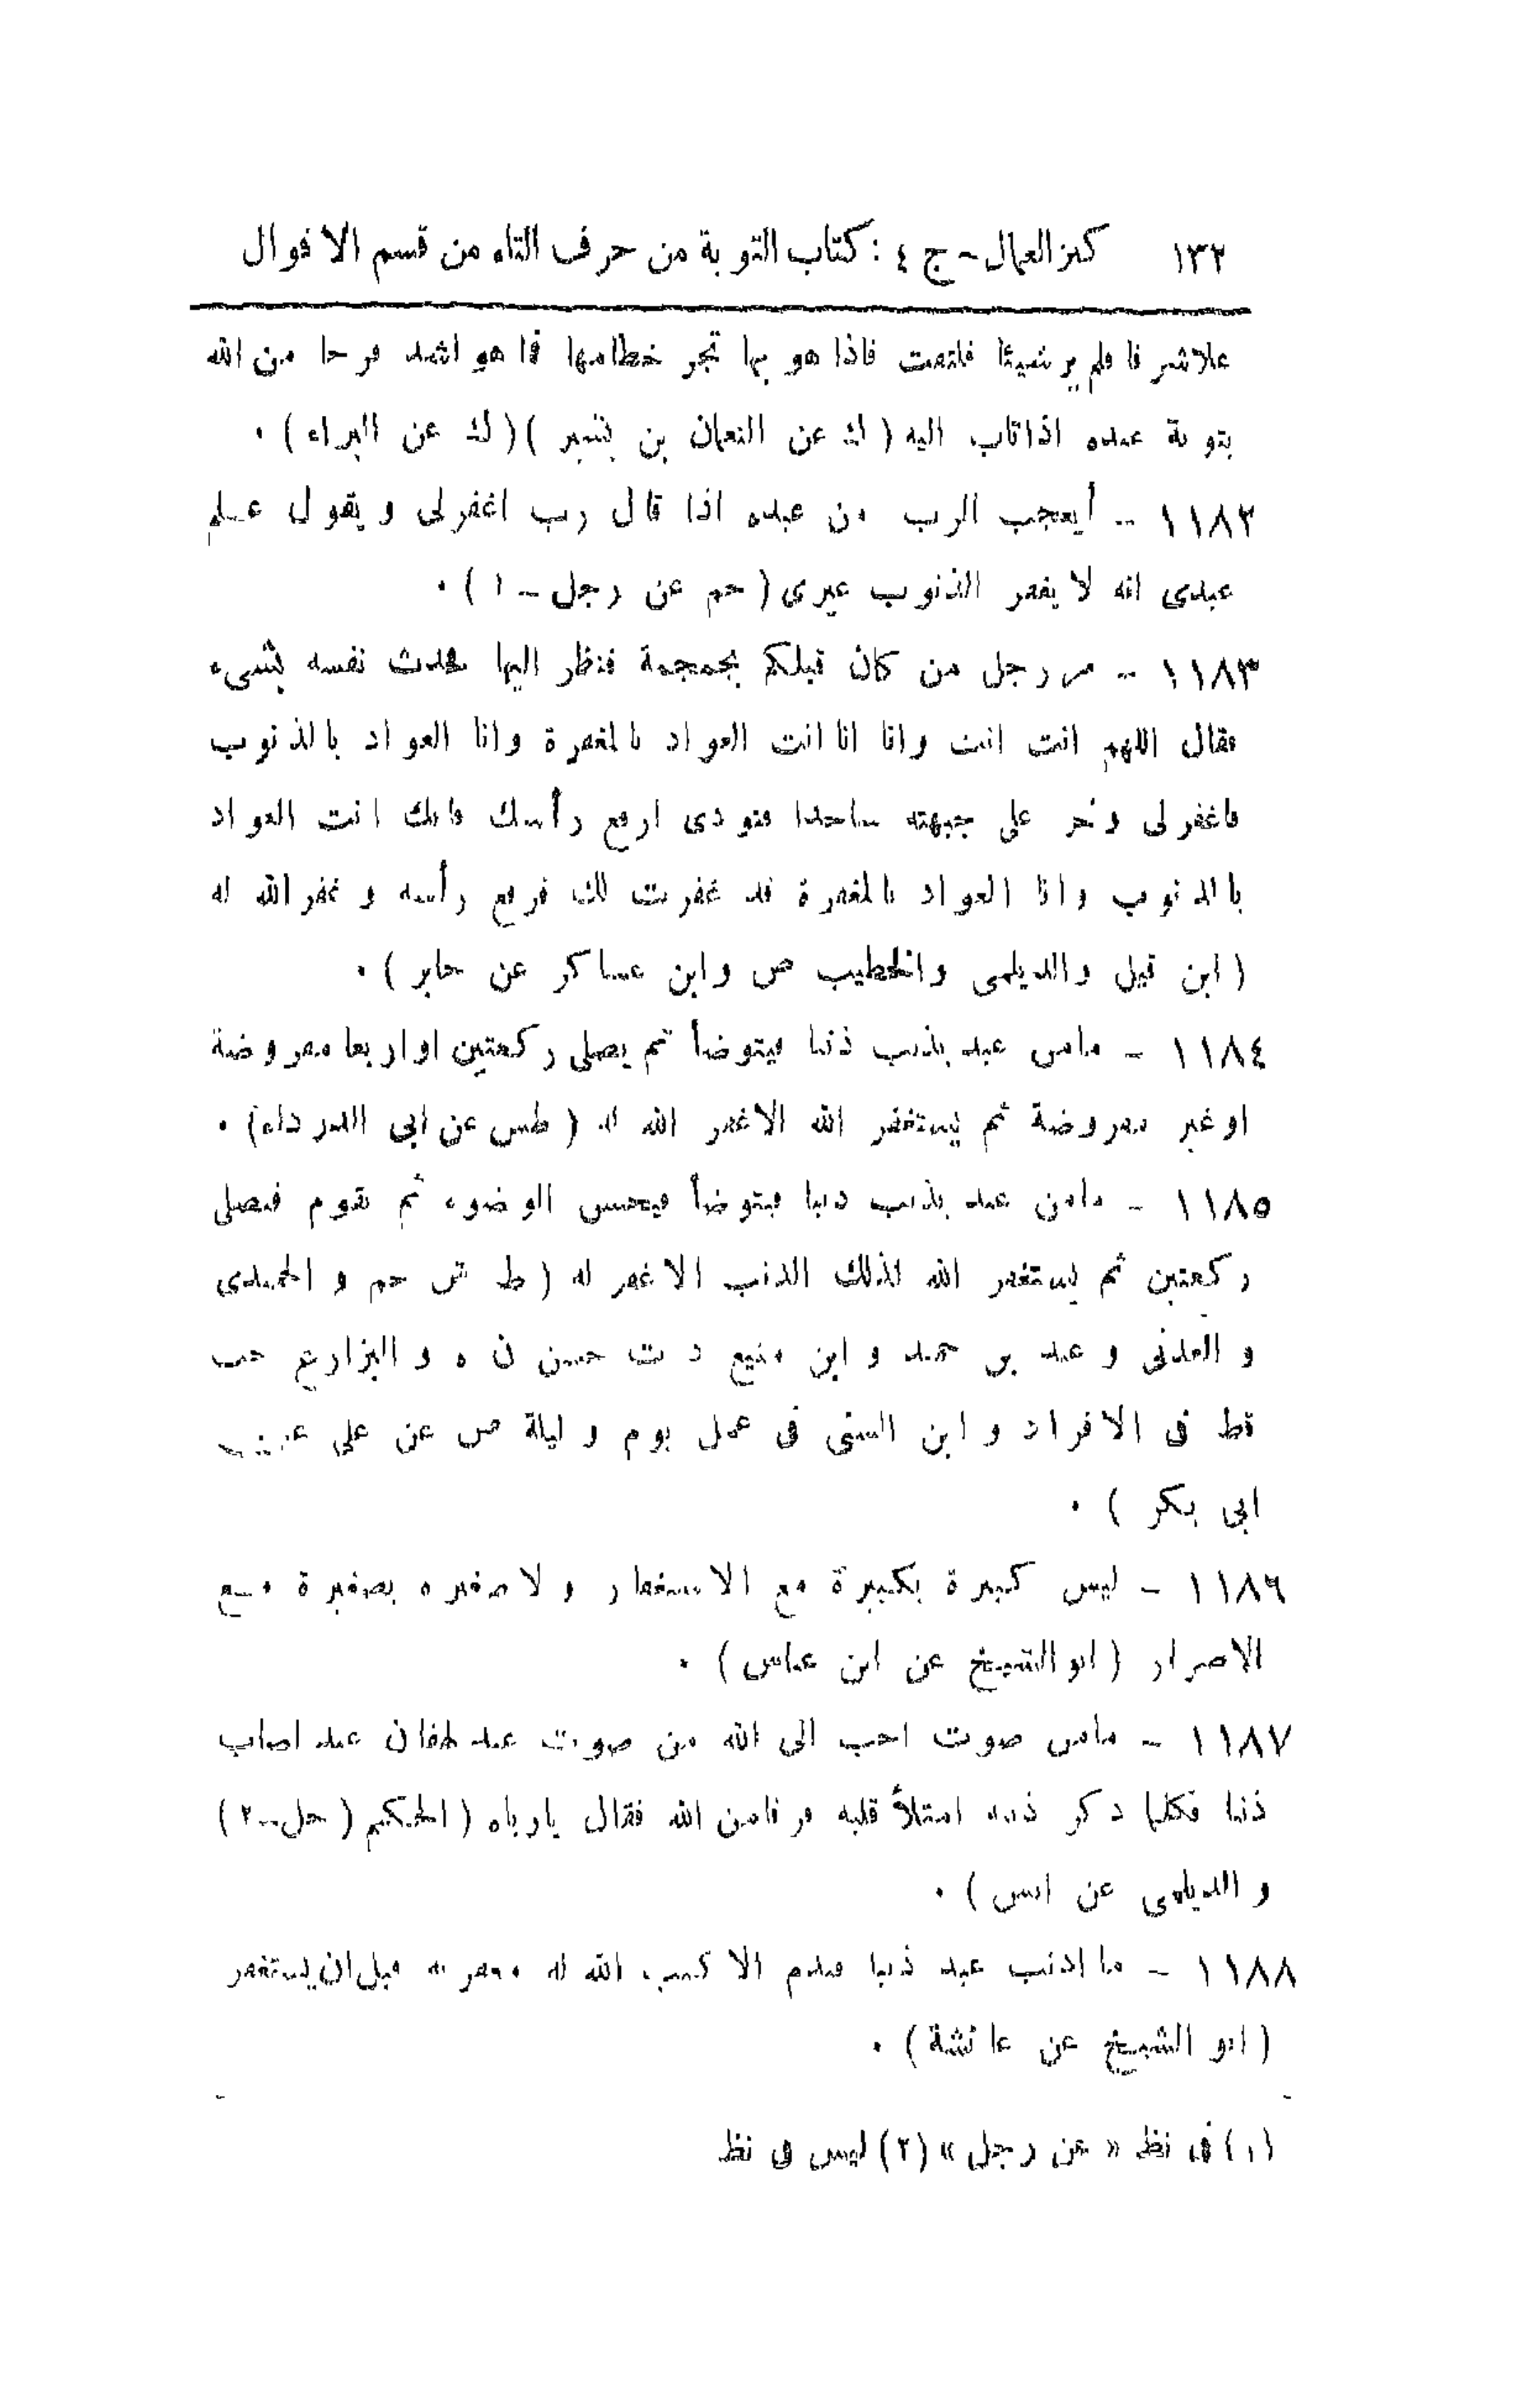 ١٣٢ كنز العمال - ج ٤ : كتاب التوبة من حرف التاء من قسم الاقوال
علاشرفا فلم ير شيئا فالتفت فاذا هو بها تجر خطامها فما هو اشد فرحا من الله
بتوبة عبده اذا تاب اليه ( ك عن النعمان بن بشير ) ( ك عن البراء ) .
١١٨٢ - أيعجب الرب من عبده اذا قال رب اغفر لى ويقول علم
عبدى انه لا يغفر الذنوب غيرى ( حم عن رجل - ١ ) .
١١٨٣ - مر رجل من كان قبلكم بجمجمة فنظر اليها فحدث نفسه بشىء
فقال اللهم انت انت وانا انا انت العواد بالمغفرة وانا العواد بالذنوب
فاغفر لى وخر على جبهته ساجدا فنودى ارفع رأسك فانك انت العواد
بالذنوب وانا العواد بالمغفرة قد غفرت لك فرفع رأسه وغفر الله له
( ابن فيل والديلمى والخطيب ض وابن عساكر عن جابر ) .
١١٨٤ - مامن عبد يذنب ذنبا فيتوضأ ثم يصلى ركعتين او اربعا مفروضة
او غير مفروضة ثم يستغفر الله الا غفر الله له ( طس عن ابى الدرداء ) .
١١٨٥ - مامن عبد يذنب ذنبا فيتوضأ فيحسن الوضوء ثم يقوم فيصلى
ركعتين ثم يستغفر الله لذلك الذنب الا غفر له ( ط ش حم والحميدى
والعدنى وعبد بن حميد وابن منيع د ت حسن ن ه والبزار ع حب
قط فى الافراد وابن السنى فى عمل يوم وليلة ض عن على عن
ابى بكر ) .
١١٨٦ - ليس كبيرة بكبيرة مع الاستغفار ولا صغيرة بصغيرة مع
الاصرار ( ابو الشيخ عن ابن عباس ) .
١١٨٧ - مامن صوت احب الى الله من صوت عبد لهفان عبد اصاب
ذنبا فكلما ذكر ذنبه امتلأ قلبه فرقا من الله فقال يارباه ( الحكيم ( حل - ٢ )
والديلمى عن انس ) .
١١٨٨ - ما اذنب عبد ذنبا فندم الا كتب الله له مغفرته قبل ان يستغفر
( ابو الشيخ عن عائشة ) .
(١) فى نظ « عن رجل » (٢) ليس فى نظ